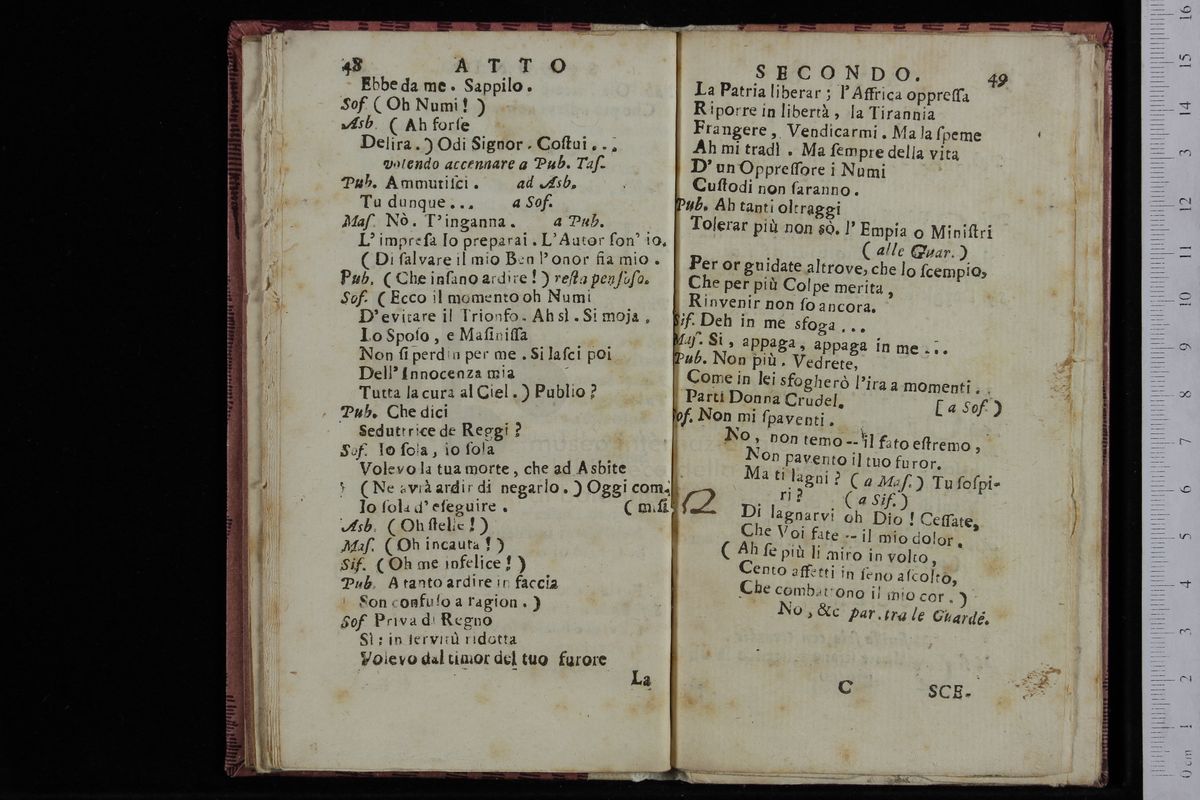 48 ATTO
Ebbe da me. Sappilo.
Sof. (Oh Numi!)
Asb. (Ah forſe
Delira.) Odi Signor. Coſtui...
volendo accennare a Pub. Taſ.
Pub. Ammutiſci. ad Asb.
Tu dunque... a Sof.
Maſ. Nò. T'inganna. a Pub.
L'impreſa Io preparai. L'Autor ſon' io.
(Di ſalvare il mio Ben l'onor fia mio.
Pub. (Che inſano ardire!) reſta penſoſo.
Sof. (Ecco il momento oh Numi
D'evitare il Trionfo. Ah sì. Si moja.
Lo Spoſo, e Maſiniſſa
Non ſi perdan per me. Si laſci poi
Dell'Innocenza mia
Tutta la cura al Ciel.) Publio?
Pub. Che dici
Seduttrice de Reggi?
Sof. Io ſola, io ſola
Volevo la tua morte, che ad Asbite
(Ne avrà ardir di negarlo.) Oggi com-
Io ſola d'eſeguire. (miſi
Asb. (Oh ſtelle!)
Maſ. (Oh incauta!)
Sif. (Oh me infelice!)
Pub. A tanto ardire in faccia
Son confuſo a ragion.)
Sof Priva di Regno
Sì: in ſervitù ridotta
Volevo dal timor del tuo furore
La
SECONDO. 49
La Patria liberar; l'Affrica oppreſſa
Riporre in libertà, la Tirannia
Frangere, Vendicarmi. Ma la ſpeme
Ah mi tradì. Ma ſempre della vita
D'un Oppreſſore i Numi
Cuſtodi non ſaranno.
Pub. Ah tanti oltraggi
Tolerar più non sò. l'Empia o Miniſtri
(alle Guar.)
Per or guidate altrove, che lo ſcempio,
Che per più Colpe merita,
Rinvenir non ſo ancora.
Sif. Deh in me sfoga...
Maſ. Si, appaga, appaga in me...
Pub. Non più. Vedrete,
Come in lei sfogherò l'ira a momenti.
Parti Donna Crudel. [a Sof.)
Sof. Non mi ſpaventi.
No, non temo -- il fato eſtremo,
Non pavento il tuo furor.
Ma ti lagni? (a Maſ.) Tu ſoſpi-
ri? (a Sif.)
Di lagnarvi oh Dio! Ceſſate,
Che Voi fate -- il mio dolor.
(Ah ſe più li miro in volto,
Cento affetti in ſeno aſcolto,
Che combattono il mio cor.)
No, &c par. tra le Guardé.
C SCE-